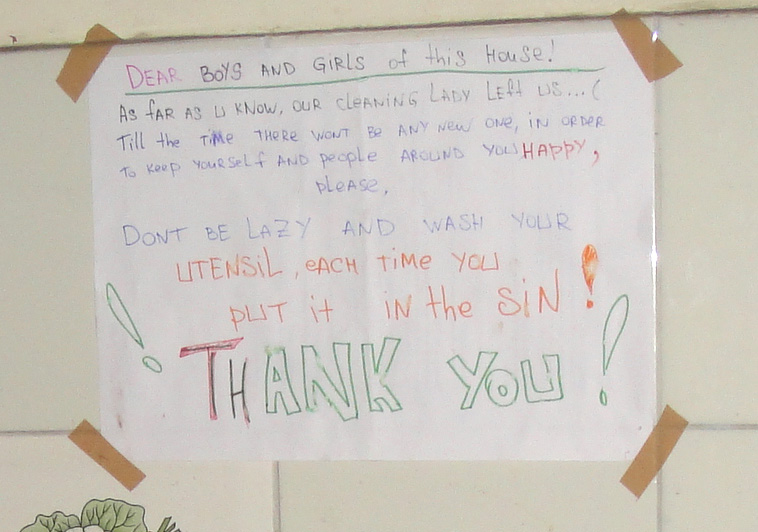 DEAR BOYS AND GIRLS of this House!
AS fAR AS U KNOW, OUR CLEANING LADY LEft US...(
Till the TIME THERE WONT BE ANY NEW ONE, IN ORDER
TO KEEP YOURSELF AND people AROUND YOU HAPPY,
PLEASE,
DONT BE LAZY AND WASH YOUR
UTENSIL, EACH TIME YOU
PUT it IN the SIN!
! THANK YOU!